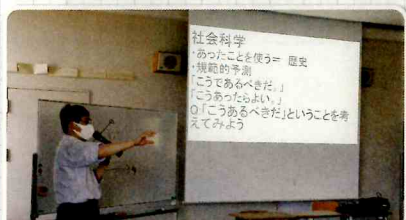 社会科学
・あったことを使う＝ 歴史
・規範的予測
「こうであるべきだ。」
「こうあったらよい。」
Q「こうあるべきだ」ということを考
えてみよう